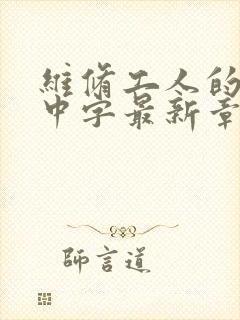 維脩工人的
中字最新章
師言道